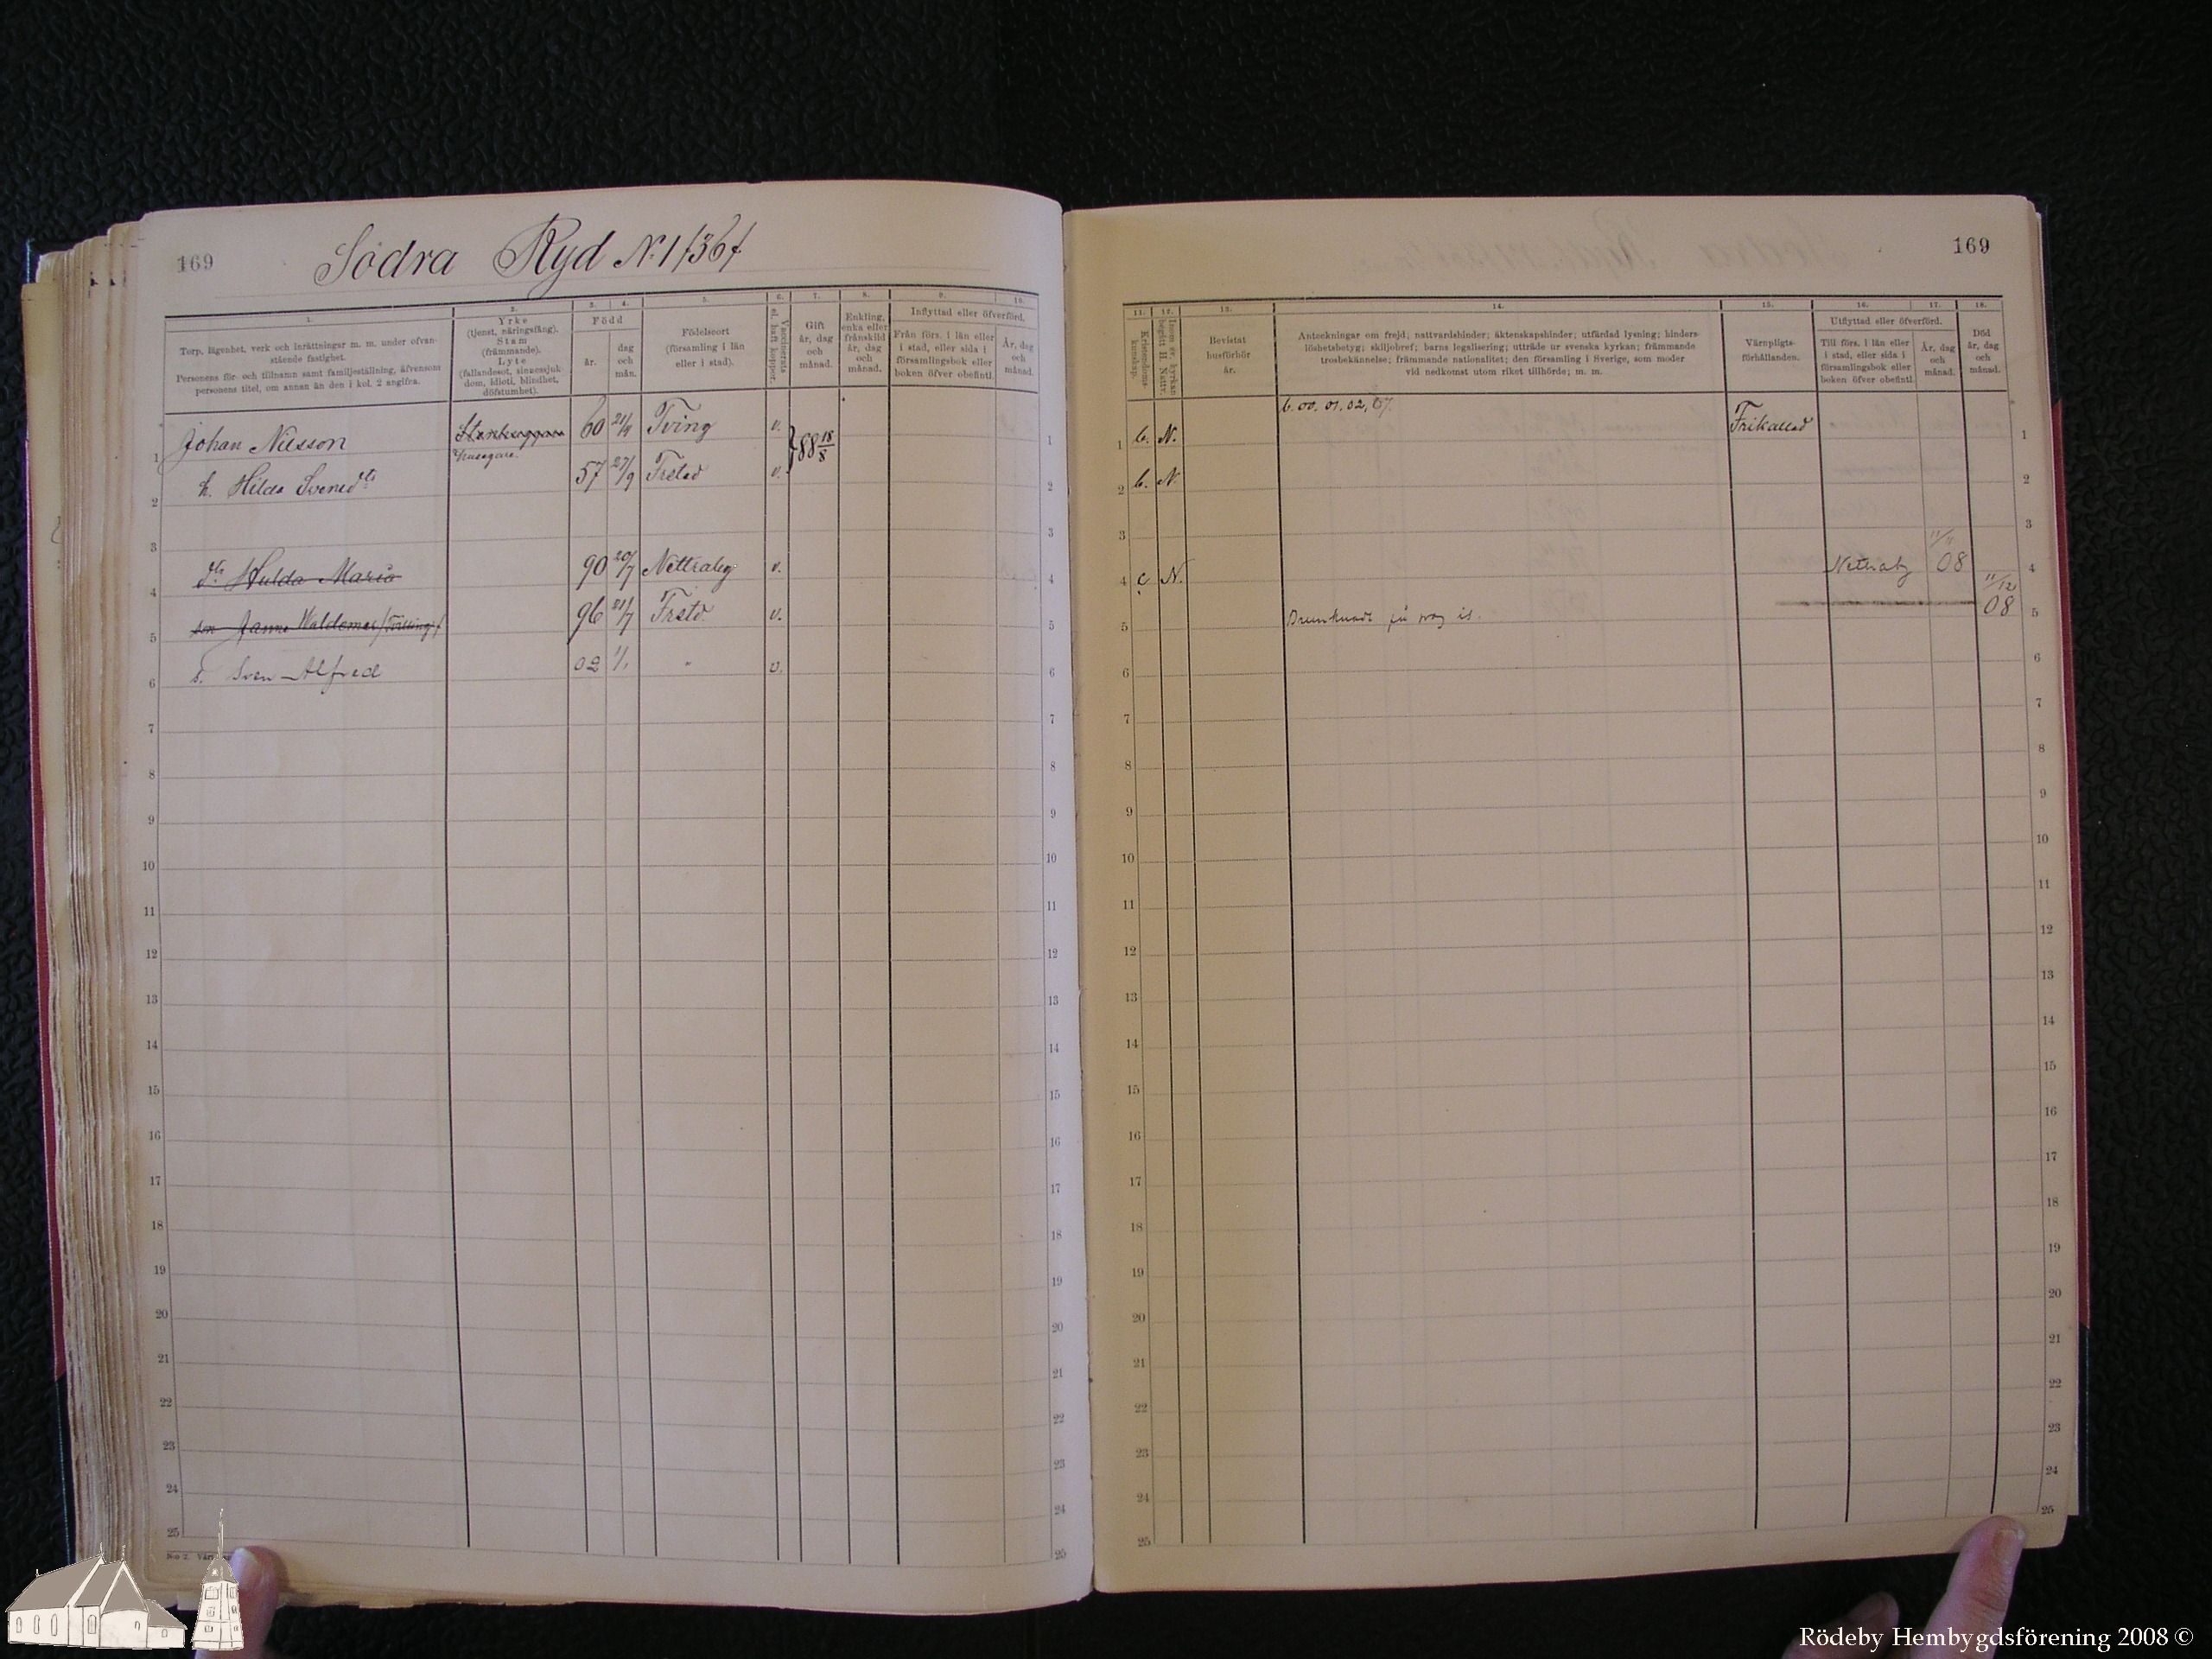 169
Södra Ryd N:1 /36/
1. 2. 3. 4. 5. 6. 7. 8. 9. 10.
Torp, lägenhet, verk och inrättningar m. m. under ofvan-
stående fastighet.
Personens för- och tillnamn samt familjeställning, äfvensom
personens titel, om annan än den i kol. 2 angifna.
Yrke
(tjenst, näringsfång).
Stam
(främmande).
Lyte
(fallandesot, sinnessjuk-
dom, idioti, blindhet,
döfstumhet).
Född
år.
dag
och
mån.
Födelseort
(församling i län
eller i stad).
Vaccinerats
el. haft koppor.
Gift
år, dag
och
månad.
Enkling,
enka eller
frånskild
år, dag
och
månad.
Inflyttad eller öfverförd.
Från förs. i län eller
i stad, eller sida i
församlingsbok eller
boken öfver obefintl.
År, dag
och
månad.
1 Johan Nilsson husegare 60 Tving v. } 88 18/8 1
2 h. Hilda Svensdtr 57 27/9 Frstad v. 2
3 3
4 dtr Hulda Maria 90 20/7 Nettraby v. 4
5 son Janne Waldemar 96 21/7 Frstd v. 5
6 s. Sven Alfred 02 1/1 " v. 6
7 7
8 8
9 9
10 10
11 11
12 12
13 13
14 14
15 15
16 16
17 17
18 18
19 19
20 20
21 21
22 22
23 23
24 24
25 25
169
11. 12. 13. 14. 15. 16. 17. 18.
Kristendoms-
kunskap.
Inom sv. kyrkan
begått H. Nattv.
Bevistat
husförhör
år.
Anteckningar om frejd; nattvardshinder; äktenskapshinder; utfärdad lysning; hinders-
löshetsbetyg; skiljobref; barns legalisering; utträde ur svenska kyrkan; främmande
trosbekännelse; främmande nationalitet; den församling i Sverige, som moder
vid nedkomst utom riket tillhörde; m. m.
Värnpligts-
förhållanden.
Utflyttad eller öfverförd.
Till förs. i län eller
i stad, eller sida i
församlingsbok eller
boken öfver obefintl.
År, dag
och
månad.
Död
år, dag
och
månad.
1 b. N. b. 00. 01. 02, 07. Frikallad 1
2 b. N. 2
3 3
4 c N. Nettraby 11/11 08 4
5 Drunknade på svag is. 11/12 08 5
6 6
7 7
8 8
9 9
10 10
11 11
12 12
13 13
14 14
15 15
16 16
17 17
18 18
19 19
20 20
21 21
22 22
23 23
24 24
25 25
Rödeby Hembygdsförening 2008 ©